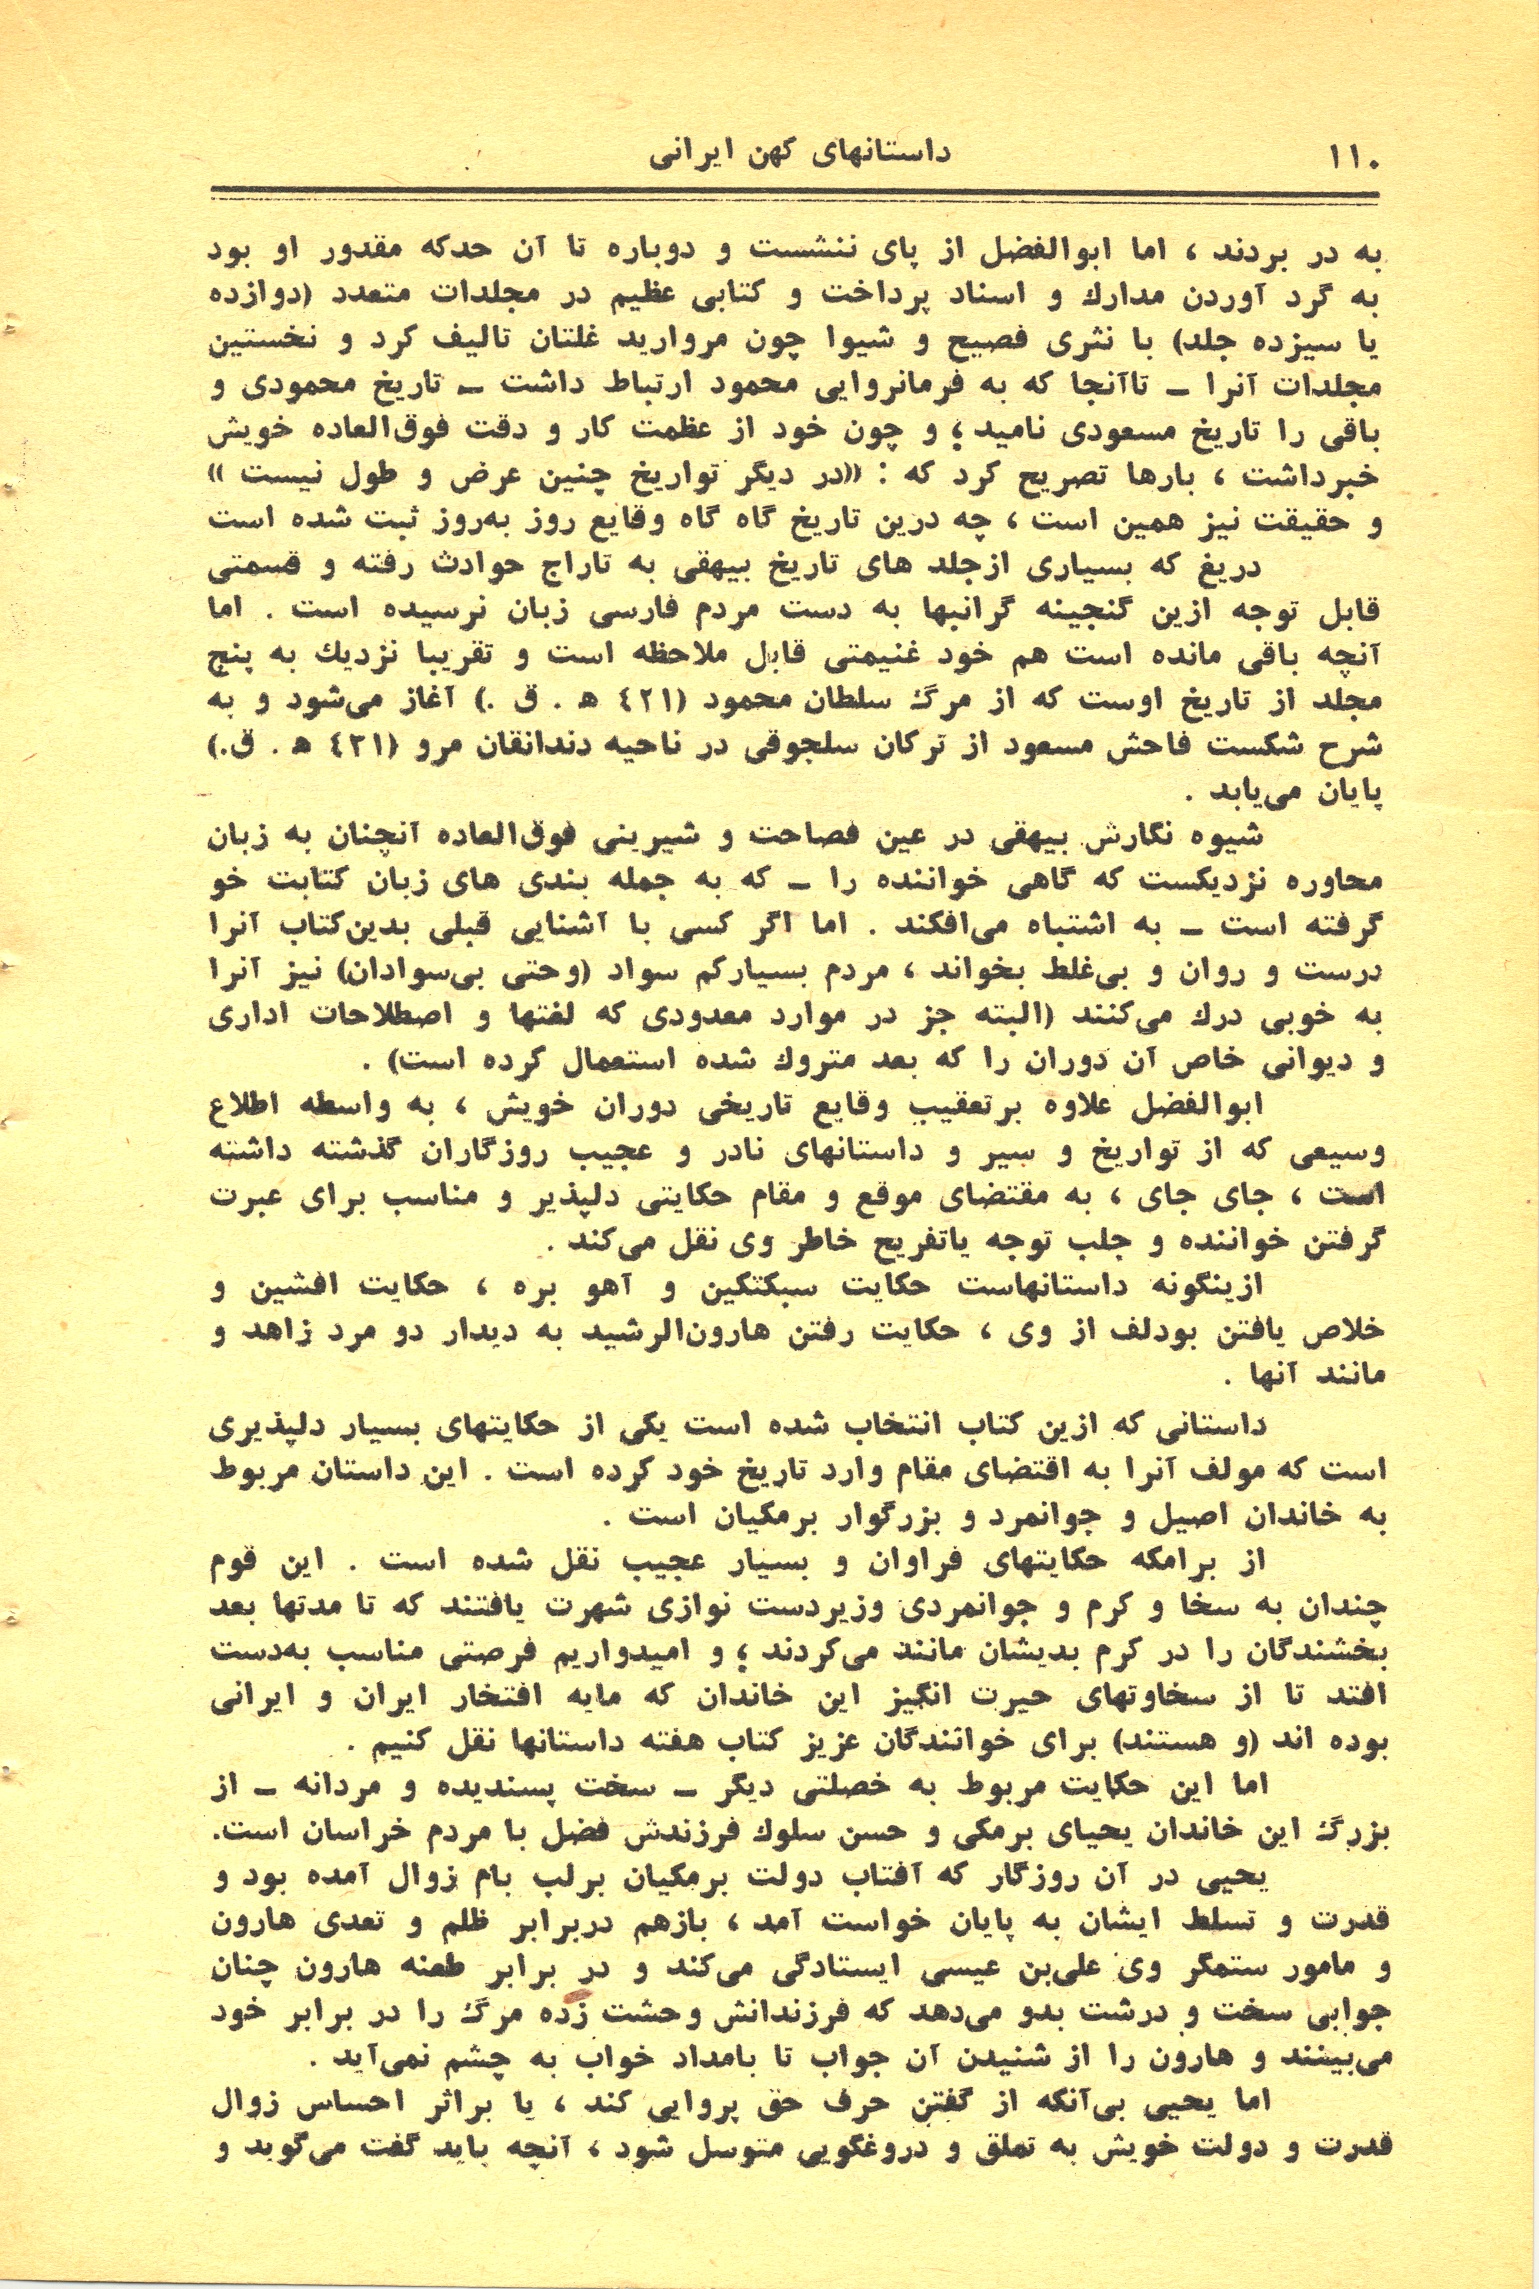 ۱۱۰
داستانهای کهن ایرانی
به در بردند ، اما ابوالفضل از پای ننشست و دوباره تا آن حدکه مقدور او بود
به گرد آوردن مدارك و اسناد پرداخت و کتابی عظیم در مجلدات متعدد (دوازده
یا سیزده جلد) با نثری فصیح و شیوا چون مروارید غلتان تالیف کرد و نخستین
مجلدات آنرا ـ تاآنجا که به فرمانروایی محمود ارتباط داشت ـ تاریخ محمودی و
باقی را تاریخ مسعودی نامید ؛ و چون خود از عظمت کار و دقت فوق‌العاده خویش
خبرداشت ، بارها تصریح کرد که : «در دیگر تواریخ چنین عرض و طول نیست »
و حقیقت نیز همین است ، چه درین تاریخ گاه گاه وقایع روز به‌روز ثبت شده است
دریغ که بسیاری ازجلد های تاریخ بیهقی به تاراج حوادث رفته و قسمتی
قابل توجه ازین گنجینه گرانبها به دست مردم فارسی زبان نرسیده است . اما
آنچه باقی مانده است هم خود غنیمتی قابل ملاحظه است و تقریبا نزدیك به پنج
مجلد از تاریخ اوست که از مرگ سلطان محمود (٤٢١ ه . ق .) آغاز می‌شود و به
شرح شکست فاحش مسعود از ترکان سلجوقی در ناحیه دندانقان مرو (٤٢١ ه . ق.)
پایان می‌یابد .
شیوه نگارش بیهقی در عین فصاحت و شیرینی فوق‌العاده آنچنان به زبان
محاوره نزدیکست که گاهی خواننده را ـ که به جمله بندی های زبان کتابت خو
گرفته است ـ به اشتباه می‌افکند . اما اگر کسی با آشنایی قبلی بدین‌کتاب آنرا
درست و روان و بی‌غلط بخواند ، مردم بسیارکم سواد (وحتی بی‌سوادان) نیز آنرا
به خوبی درك می‌کنند (البته جز در موارد معدودی که لغتها و اصطلاحات اداری
و دیوانی خاص آن دوران را که بعد متروك شده استعمال کرده است) .
ابوالفضل علاوه برتعقیب وقایع تاریخی دوران خویش ، به واسطه اطلاع
وسیعی که از تواریخ و سیر و داستانهای نادر و عجیب روزگاران گذشته داشته
است ، جای جای ، به مقتضای موقع و مقام حکایتی دلپذیر و مناسب برای عبرت
گرفتن خواننده و جلب توجه یاتفریح خاطر وی نقل می‌کند .
ازینگونه داستانهاست حکایت سبکتکین و آهو بره ، حکایت افشین و
خلاص یافتن بودلف از وی ، حکایت رفتن هارون‌الرشید به دیدار دو مرد زاهد و
مانند آنها .
داستانی که ازین کتاب انتخاب شده است یکی از حکایتهای بسیار دلپذیری
است که مولف آنرا به اقتضای مقام وارد تاریخ خود کرده است . این داستان مربوط
به خاندان اصیل و جوانمرد و بزرگوار برمکیان است .
از برامکه حکایتهای فراوان و بسیار عجیب نقل شده است . این قوم
چندان به سخا و کرم و جوانمردی وزیردست نوازی شهرت یافتند که تا مدتها بعد
بخشندگان را در کرم بدیشان مانند می‌کردند ؛ و امیدواریم فرصتی مناسب به‌دست
افتد تا از سخاوتهای حیرت انگیز این خاندان که مایه افتخار ایران و ایرانی
بوده اند (و هستند) برای خوانندگان عزیز کتاب هفته داستانها نقل کنیم .
اما این حکایت مربوط به خصلتی دیگر ـ سخت پسندیده و مردانه ـ از
بزرگ این خاندان یحیای برمکی و حسن سلوك فرزندش فضل با مردم خراسان است.
یحیی در آن روزگار که آفتاب دولت برمکیان برلب بام زوال آمده بود و
قدرت و تسلط ایشان به پایان خواست آمد ، بازهم دربرابر ظلم و تعدی هارون
و مامور ستمگر وی علی‌بن عیسی ایستادگی می‌کند و در برابر طعنه هارون چنان
جوابی سخت و درشت بدو می‌دهد که فرزندانش وحشت زده مرگ را در برابر خود
می‌بینند و هارون را از شنیدن آن جواب تا بامداد خواب به چشم نمی‌آید .
اما یحیی بی‌آنکه از گفتن حرف حق پروایی کند ، یا براثر احساس زوال
قدرت و دولت خویش به تملق و دروغگویی متوسل شود ، آنچه باید گفت می‌گوید و